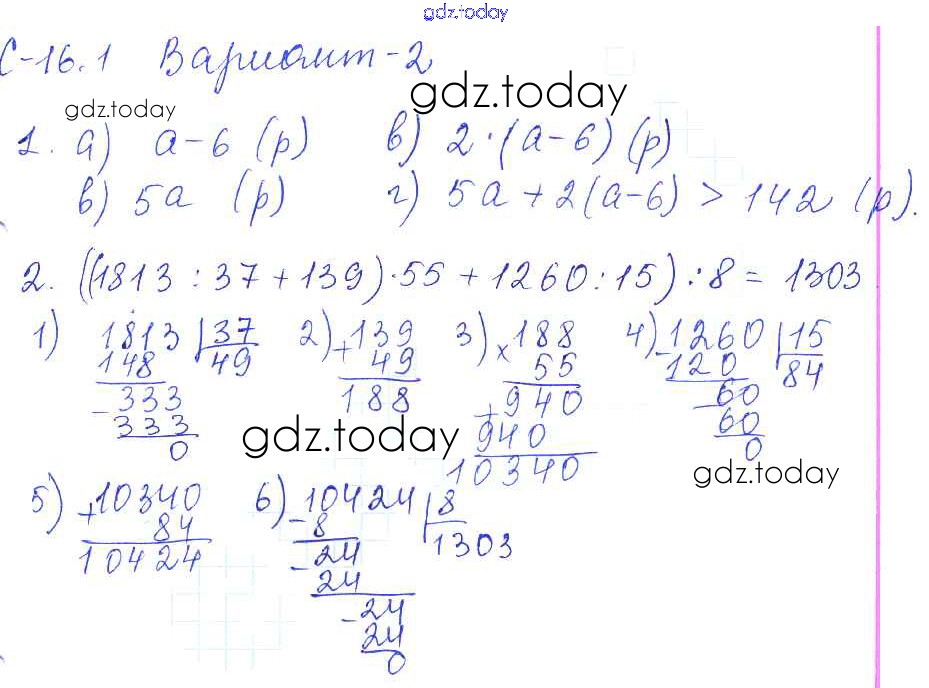 gdz.today
С-16.1 Вариант-2
gdz.today
gdz.today
1. а) а-6 (р) в) 2·(а-6) (р)
в) 5а (р) г) 5а+2(а-6) > 142 (р).
2. ((1813 : 37 + 139)·55 + 1260 : 15) : 8 = 1303
1) 1813 37 2) +139 3) ×188 4) -1260 15
148 49 49 55 120 84
-333 188 +940 -60
333 940 60
0 10340 0
gdz.today
gdz.today
5) +10340 6) -10424 8
84 8 1303
10424 -24
24
-24
24
0